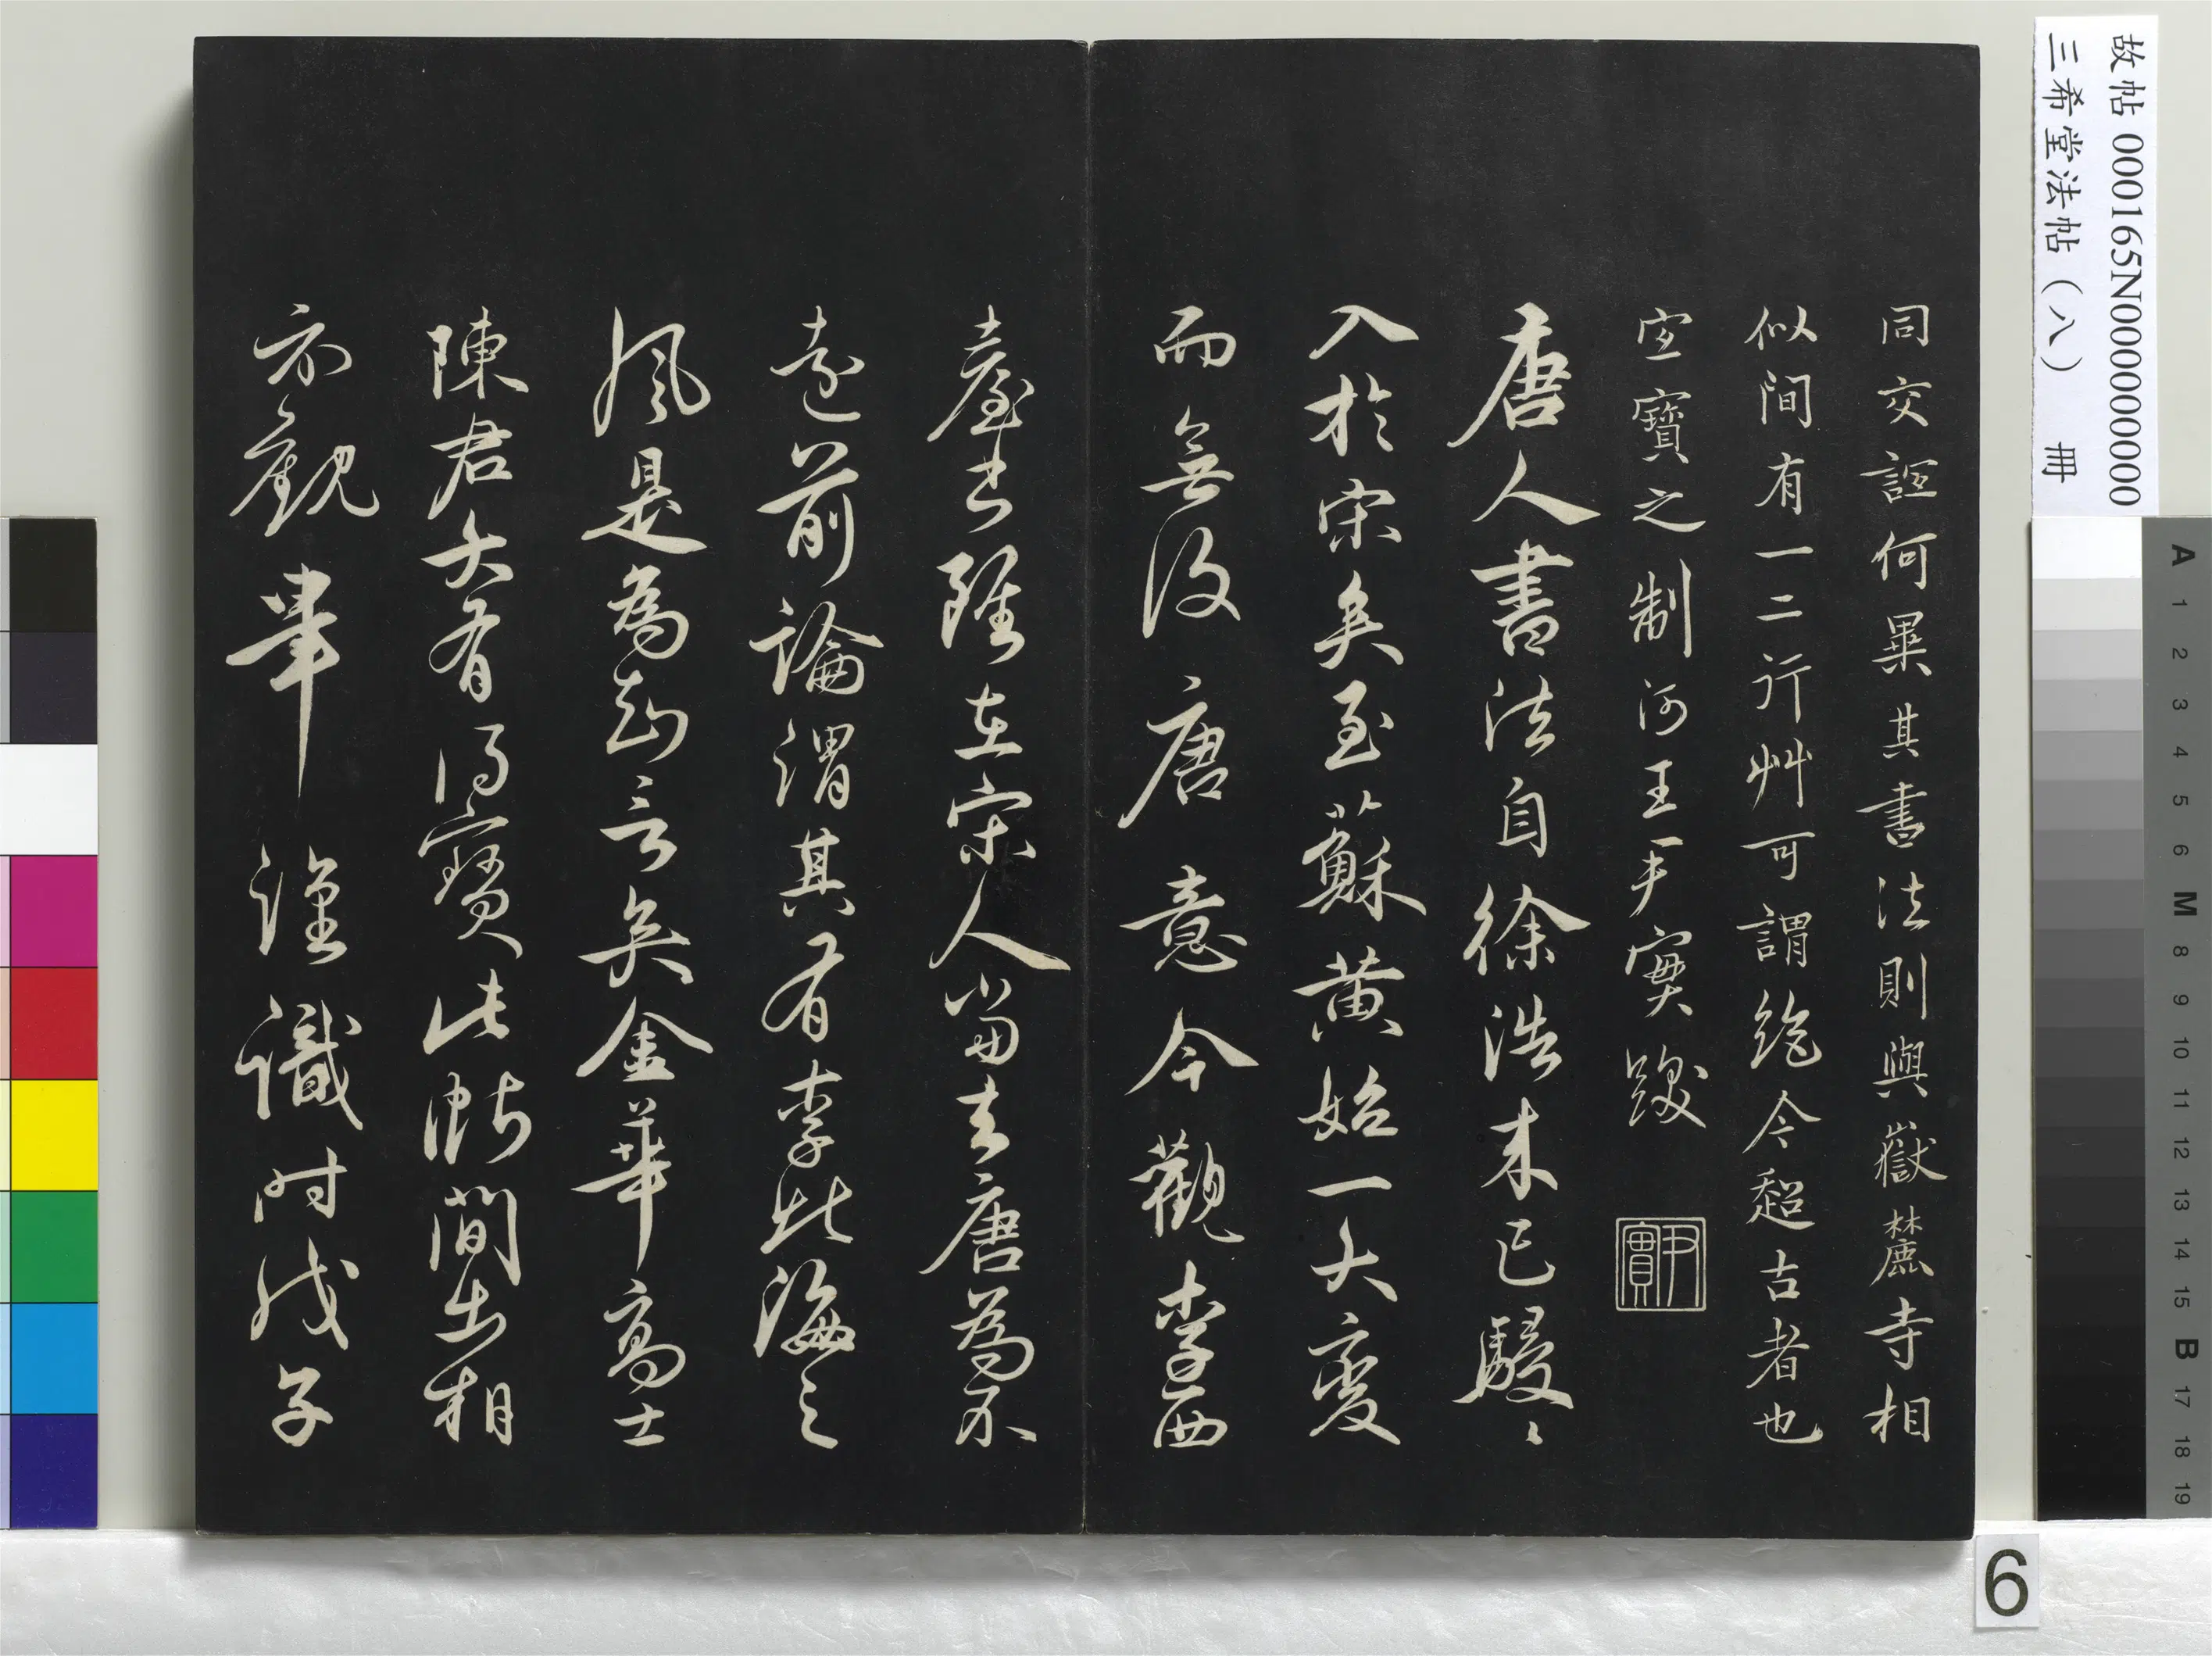 同交誼何異其書法則與嶽麓寺相
似間有一二行艸可謂絶今超古者也
宜寶之制河王尹實跋
尹實
唐人書法自徐浩末已駸〻
入於宋矣至蘇黃始一大變
而無復唐意今觀李西
臺書雖在宋人當去唐為不
遠前論謂其有李北海之
風是為知言矣金華高士
陳君大有得寶此帖蘭出相
示觀畢謹識時戊子
故帖 000165N000000000
三希堂法帖（八） 冊
A 1 2 3 4 5 6 M 8 9 10 11 12 13 14 15 B 17 18 19
6